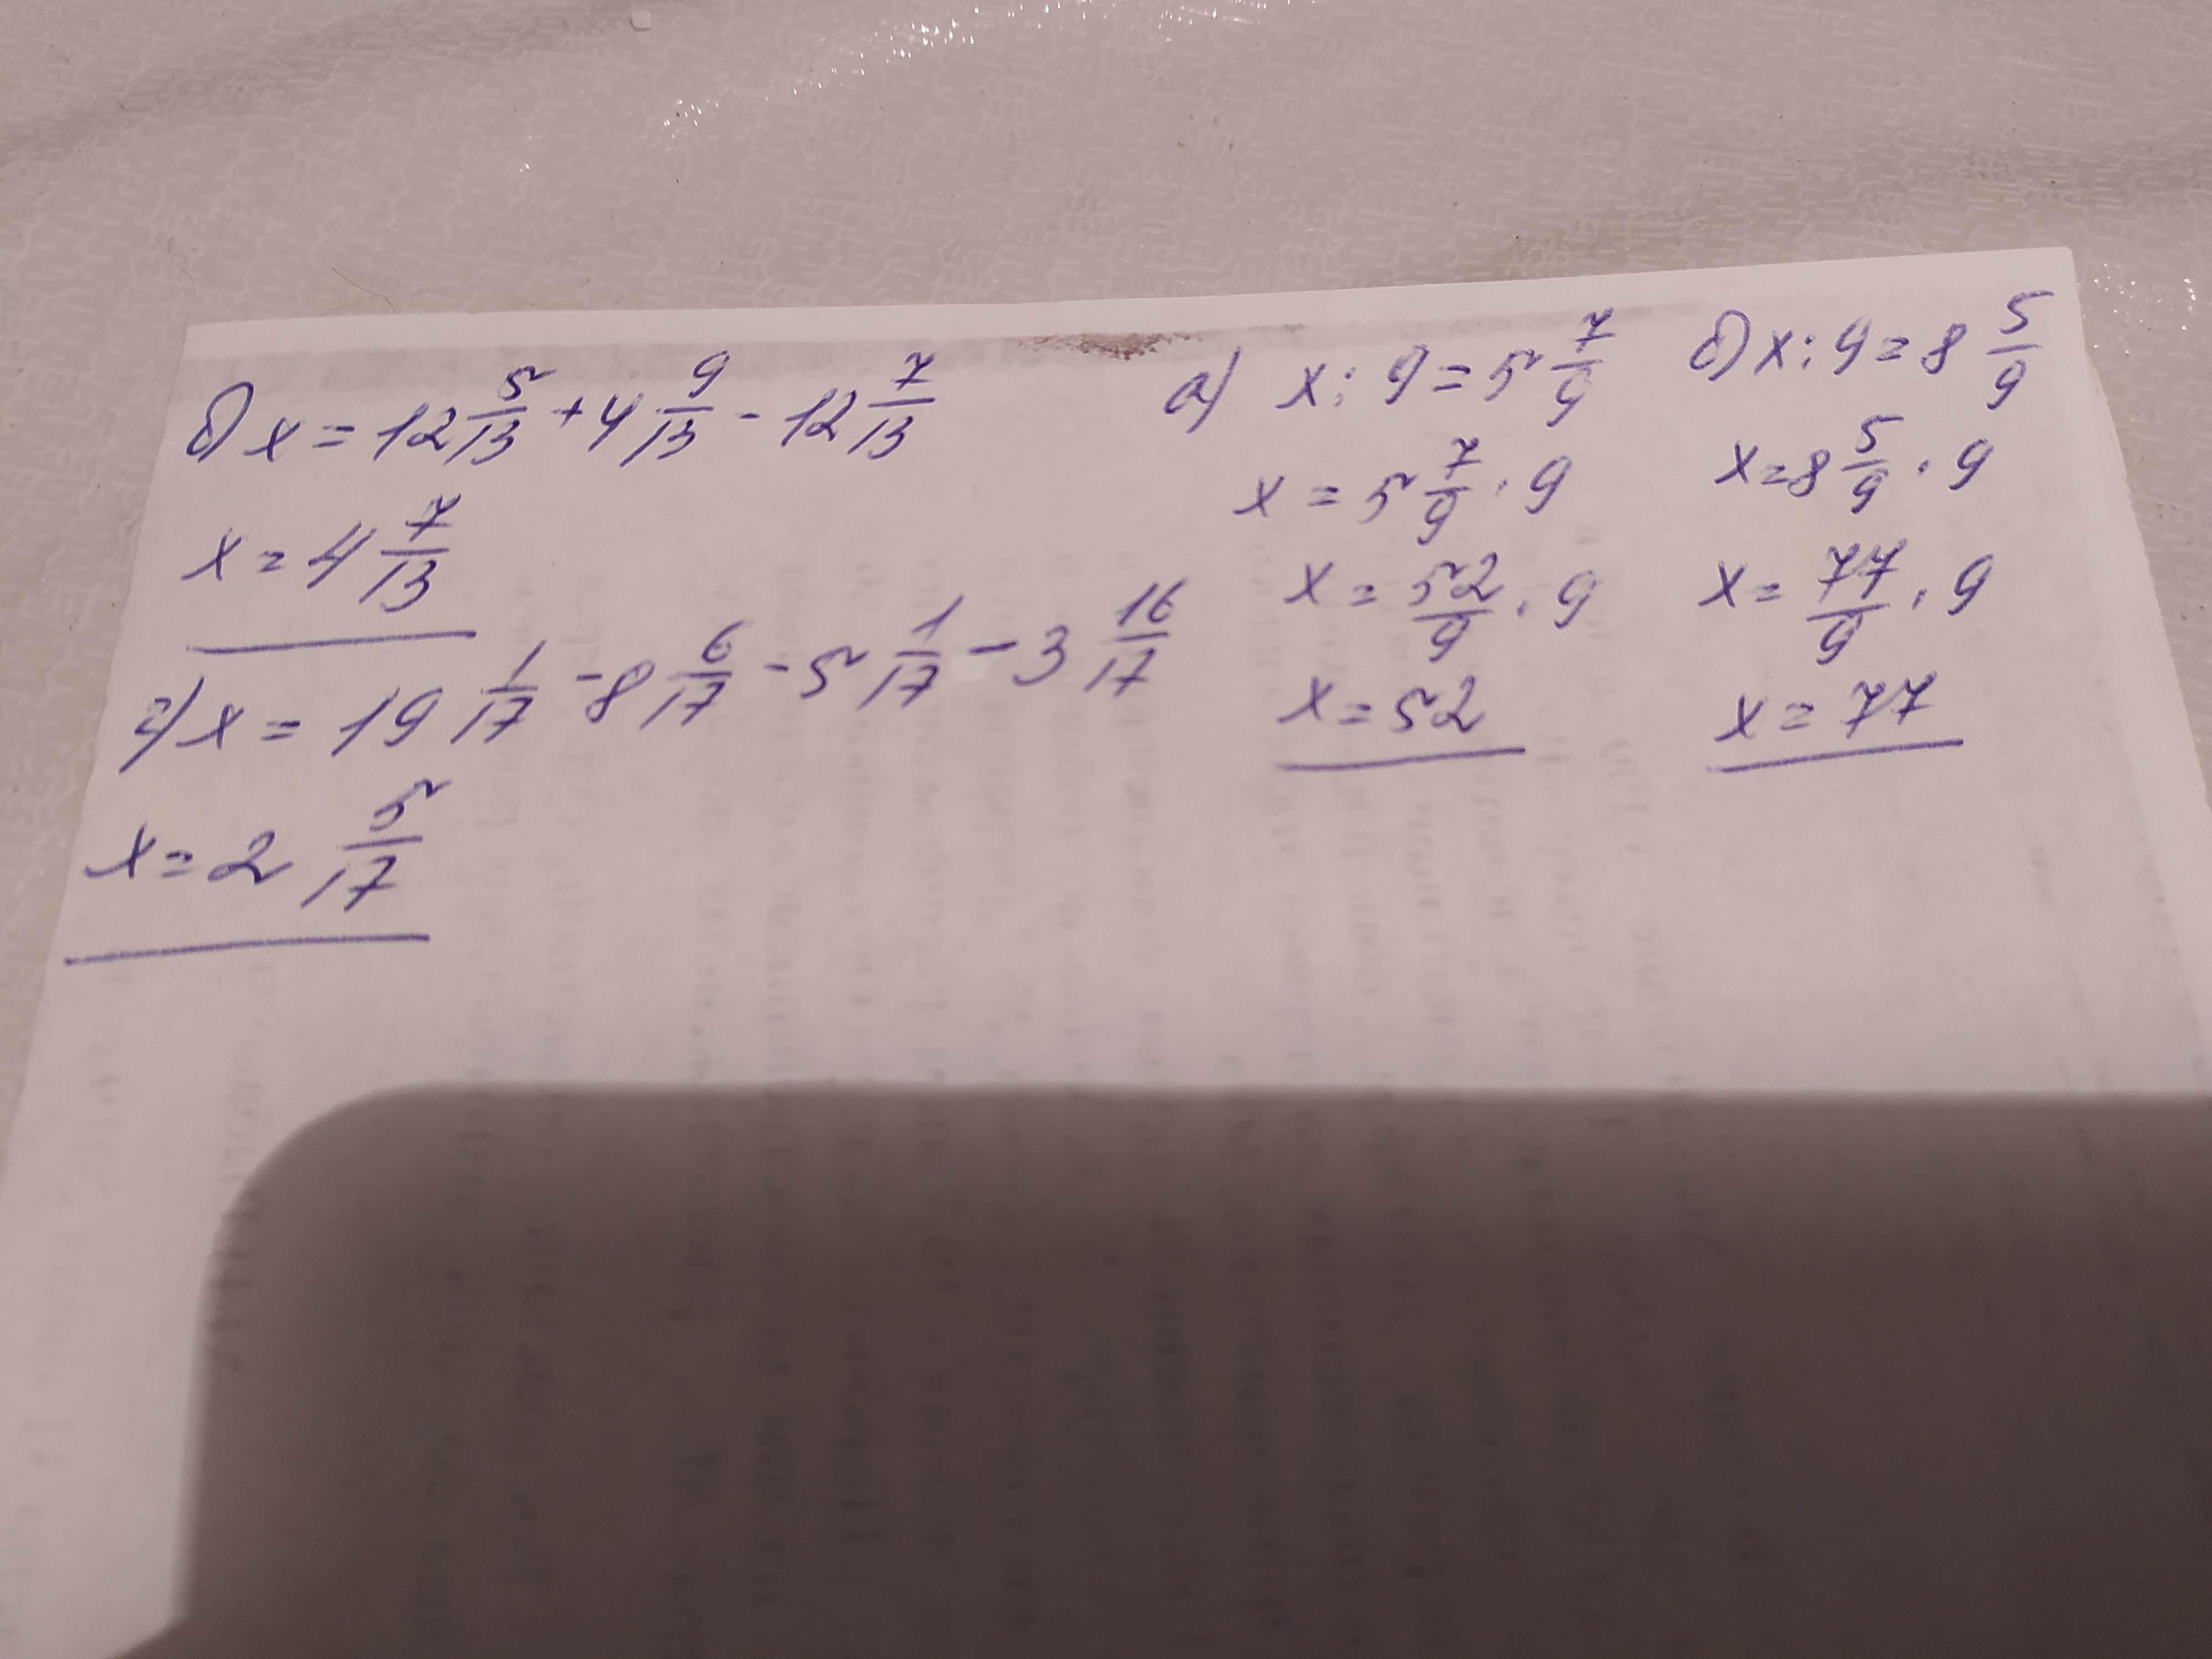 б) x = 12 5/13 + 4 9/13 - 12 7/13
x = 4 7/13
г) x = 19 1/17 - 8 6/17 - 5 1/17 - 3 16/17
x = 2 5/17
а) x : 9 = 5 7/9
x = 5 7/9 · 9
x = 52/9 · 9
x = 52
б) x : 9 = 8 5/9
x = 8 5/9 · 9
x = 77/9 · 9
x = 77